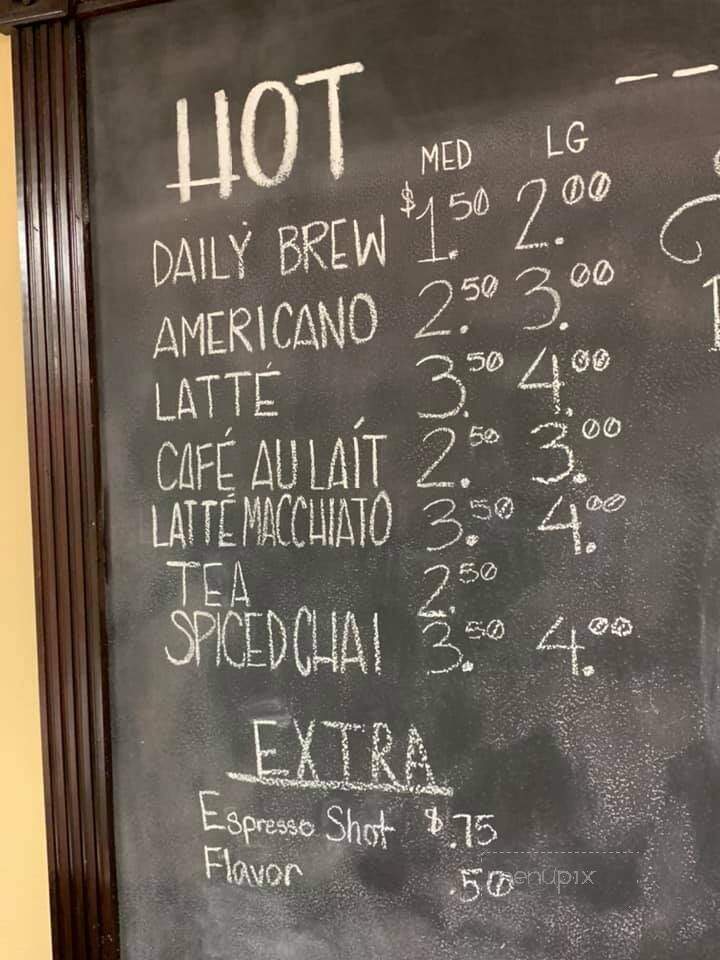 HOT
MED LG
DAILY BREW $1.50 2.00
AMERICANO 2.50 3.00
LATTÉ 3.50 4.00
CAFÉ AU LAÍT 2.50 3.00
LATTÉ MACCHIATO 3.50 4.00
TEA 2.50
SPICED CHAI 3.50 4.00
EXTRA
Espresso Shot $.75
Flavor .50
menupix